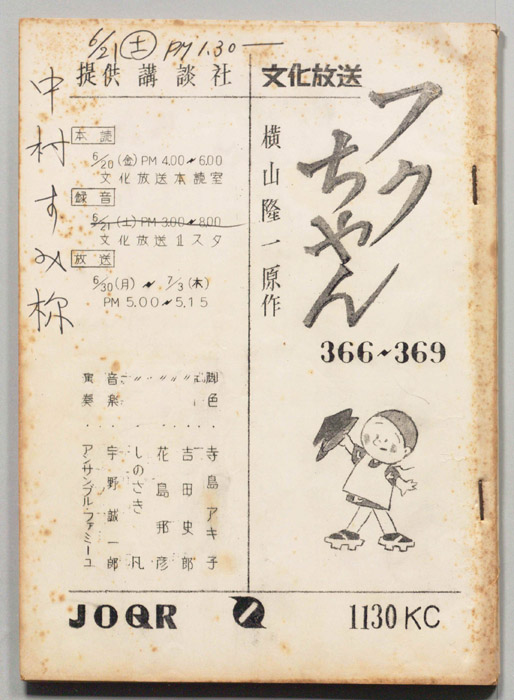 6/21 (土) PM 1.30 —
提供 講談社
文化放送
フクちゃん
横山隆一原作
366~369
中村すみ祢
本読
6/20 (金) PM 4.00~6.00
文化放送本読室
録音
6/21 (土) PM 3.00~8.00
文化放送1スタ
放送
6/30 (月) ~ 7/3 (木)
PM 5.00~5.15
脚色・寺島アキ子
〃・吉田史郎
〃・花島邦彦
〃・しのざき凡
音楽・宇野誠一郎
演奏・アンサンブル・ファミーユ
JOQR
1130KC